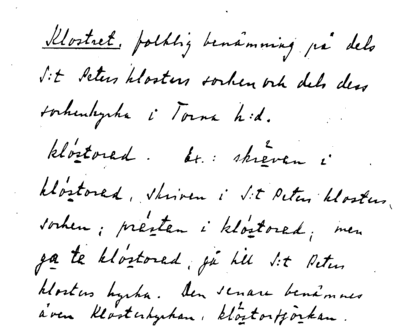 Klostret, folklig benämning på dels
S:t Peters klosters socken och dels dess
sockenkyrka i Torna h:d.
klóstored. Ex.: skrèven i
klóstored, skriven i S:t Peters klosters
socken; présten i klóstored; men
ga te klóstored, gå till S:t Peters
klosters kyrka. Den senare benämnes
även Klosterkyrkan, klósterfjörkan.